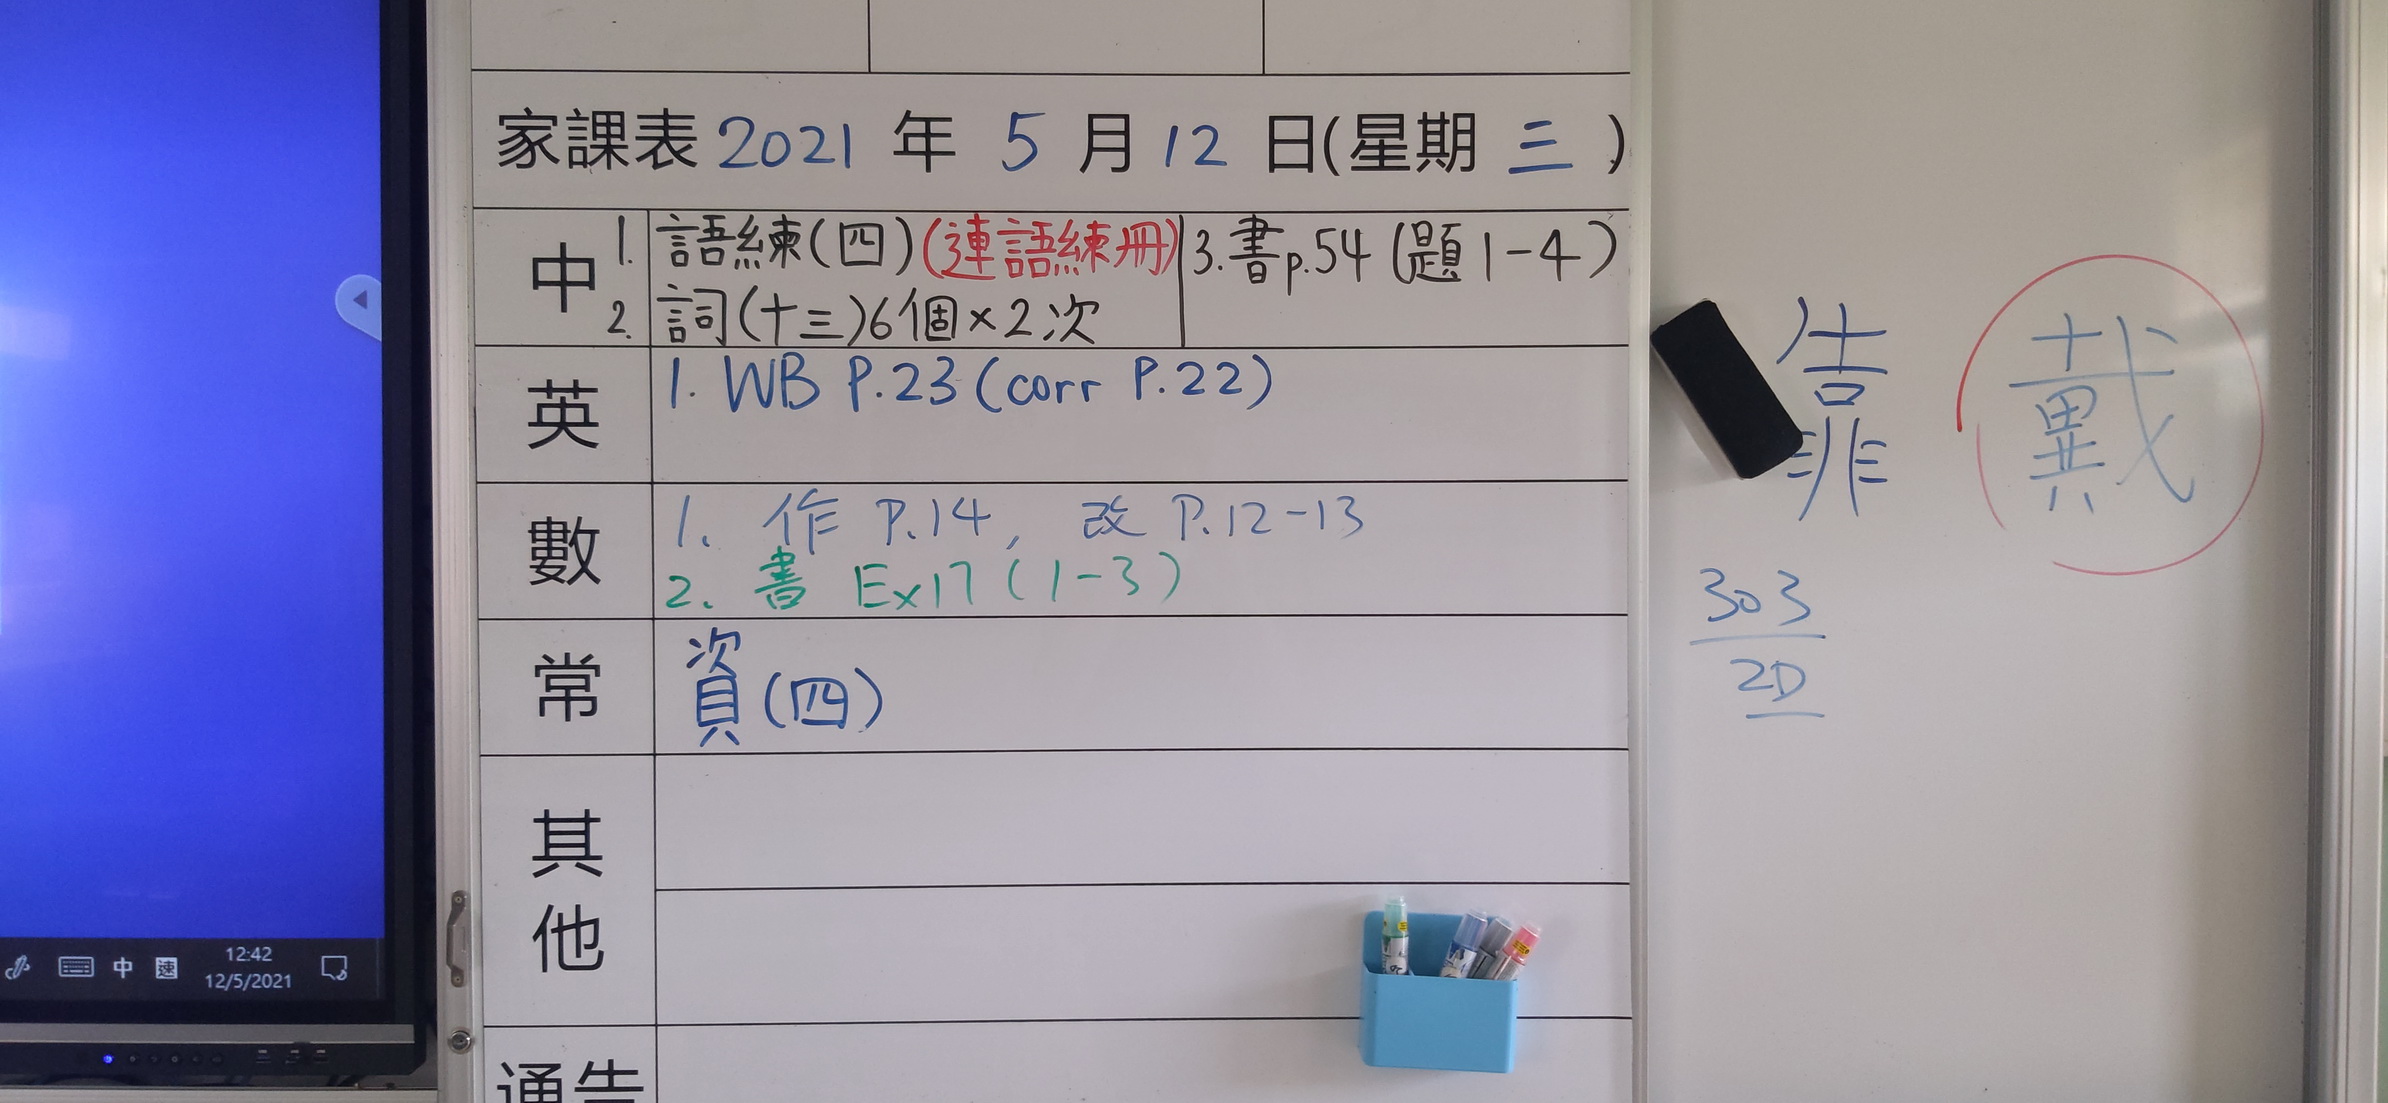 家課表 2021 年 5 月 12 日(星期 三 )
中
1. 語練(四)(連語練冊)
2. 詞(十三)6個×2次
3.書p.54 (題1-4)
英
1. WB P.23 (corr P.22)
數
1. 作 P.14, 改 P.12-13
2. 書 Ex17 (1-3)
常
資(四)
其他
通告
靠
戴
303
2D
中 速 12:42
12/5/2021